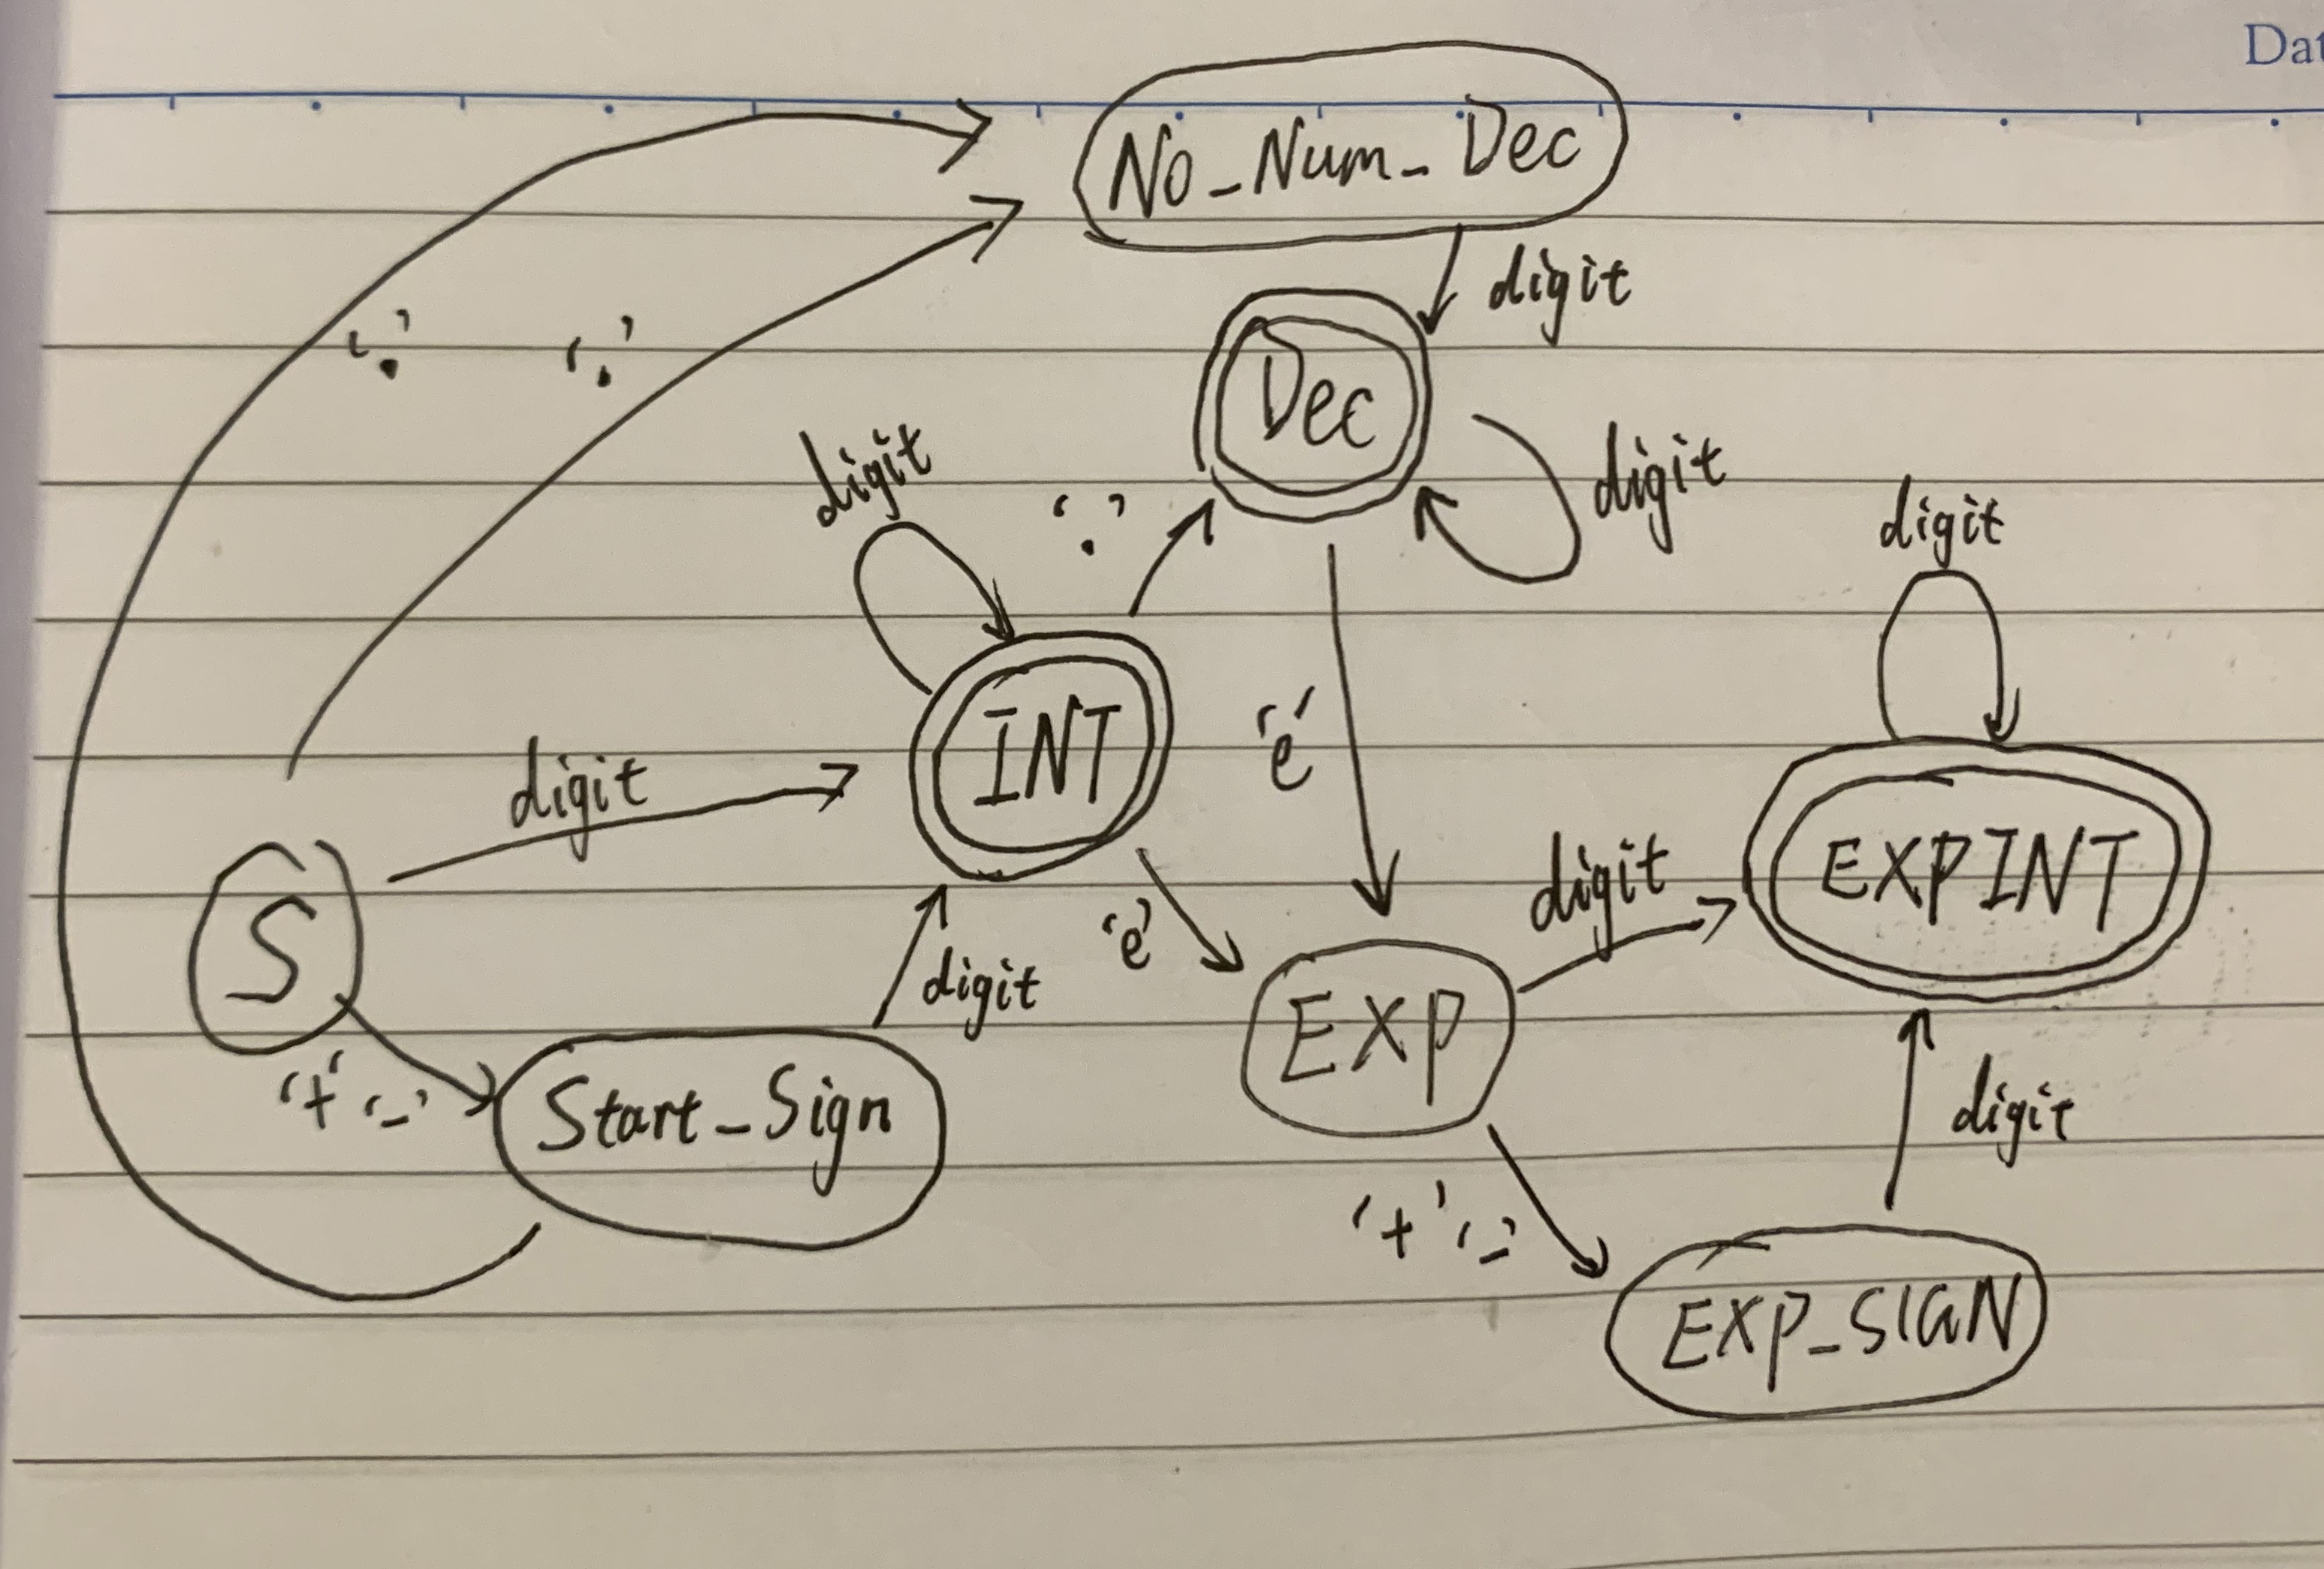 Dat
No_Num_Dec
digit
'.' '.'
Dec
digit
digit
'.'
digit
INT
'e'
digit
EXPINT
digit
S
digit
'e'
digit
EXP
'+' '-'
Start_Sign
digit
'+' '-'
EXP_SIGN